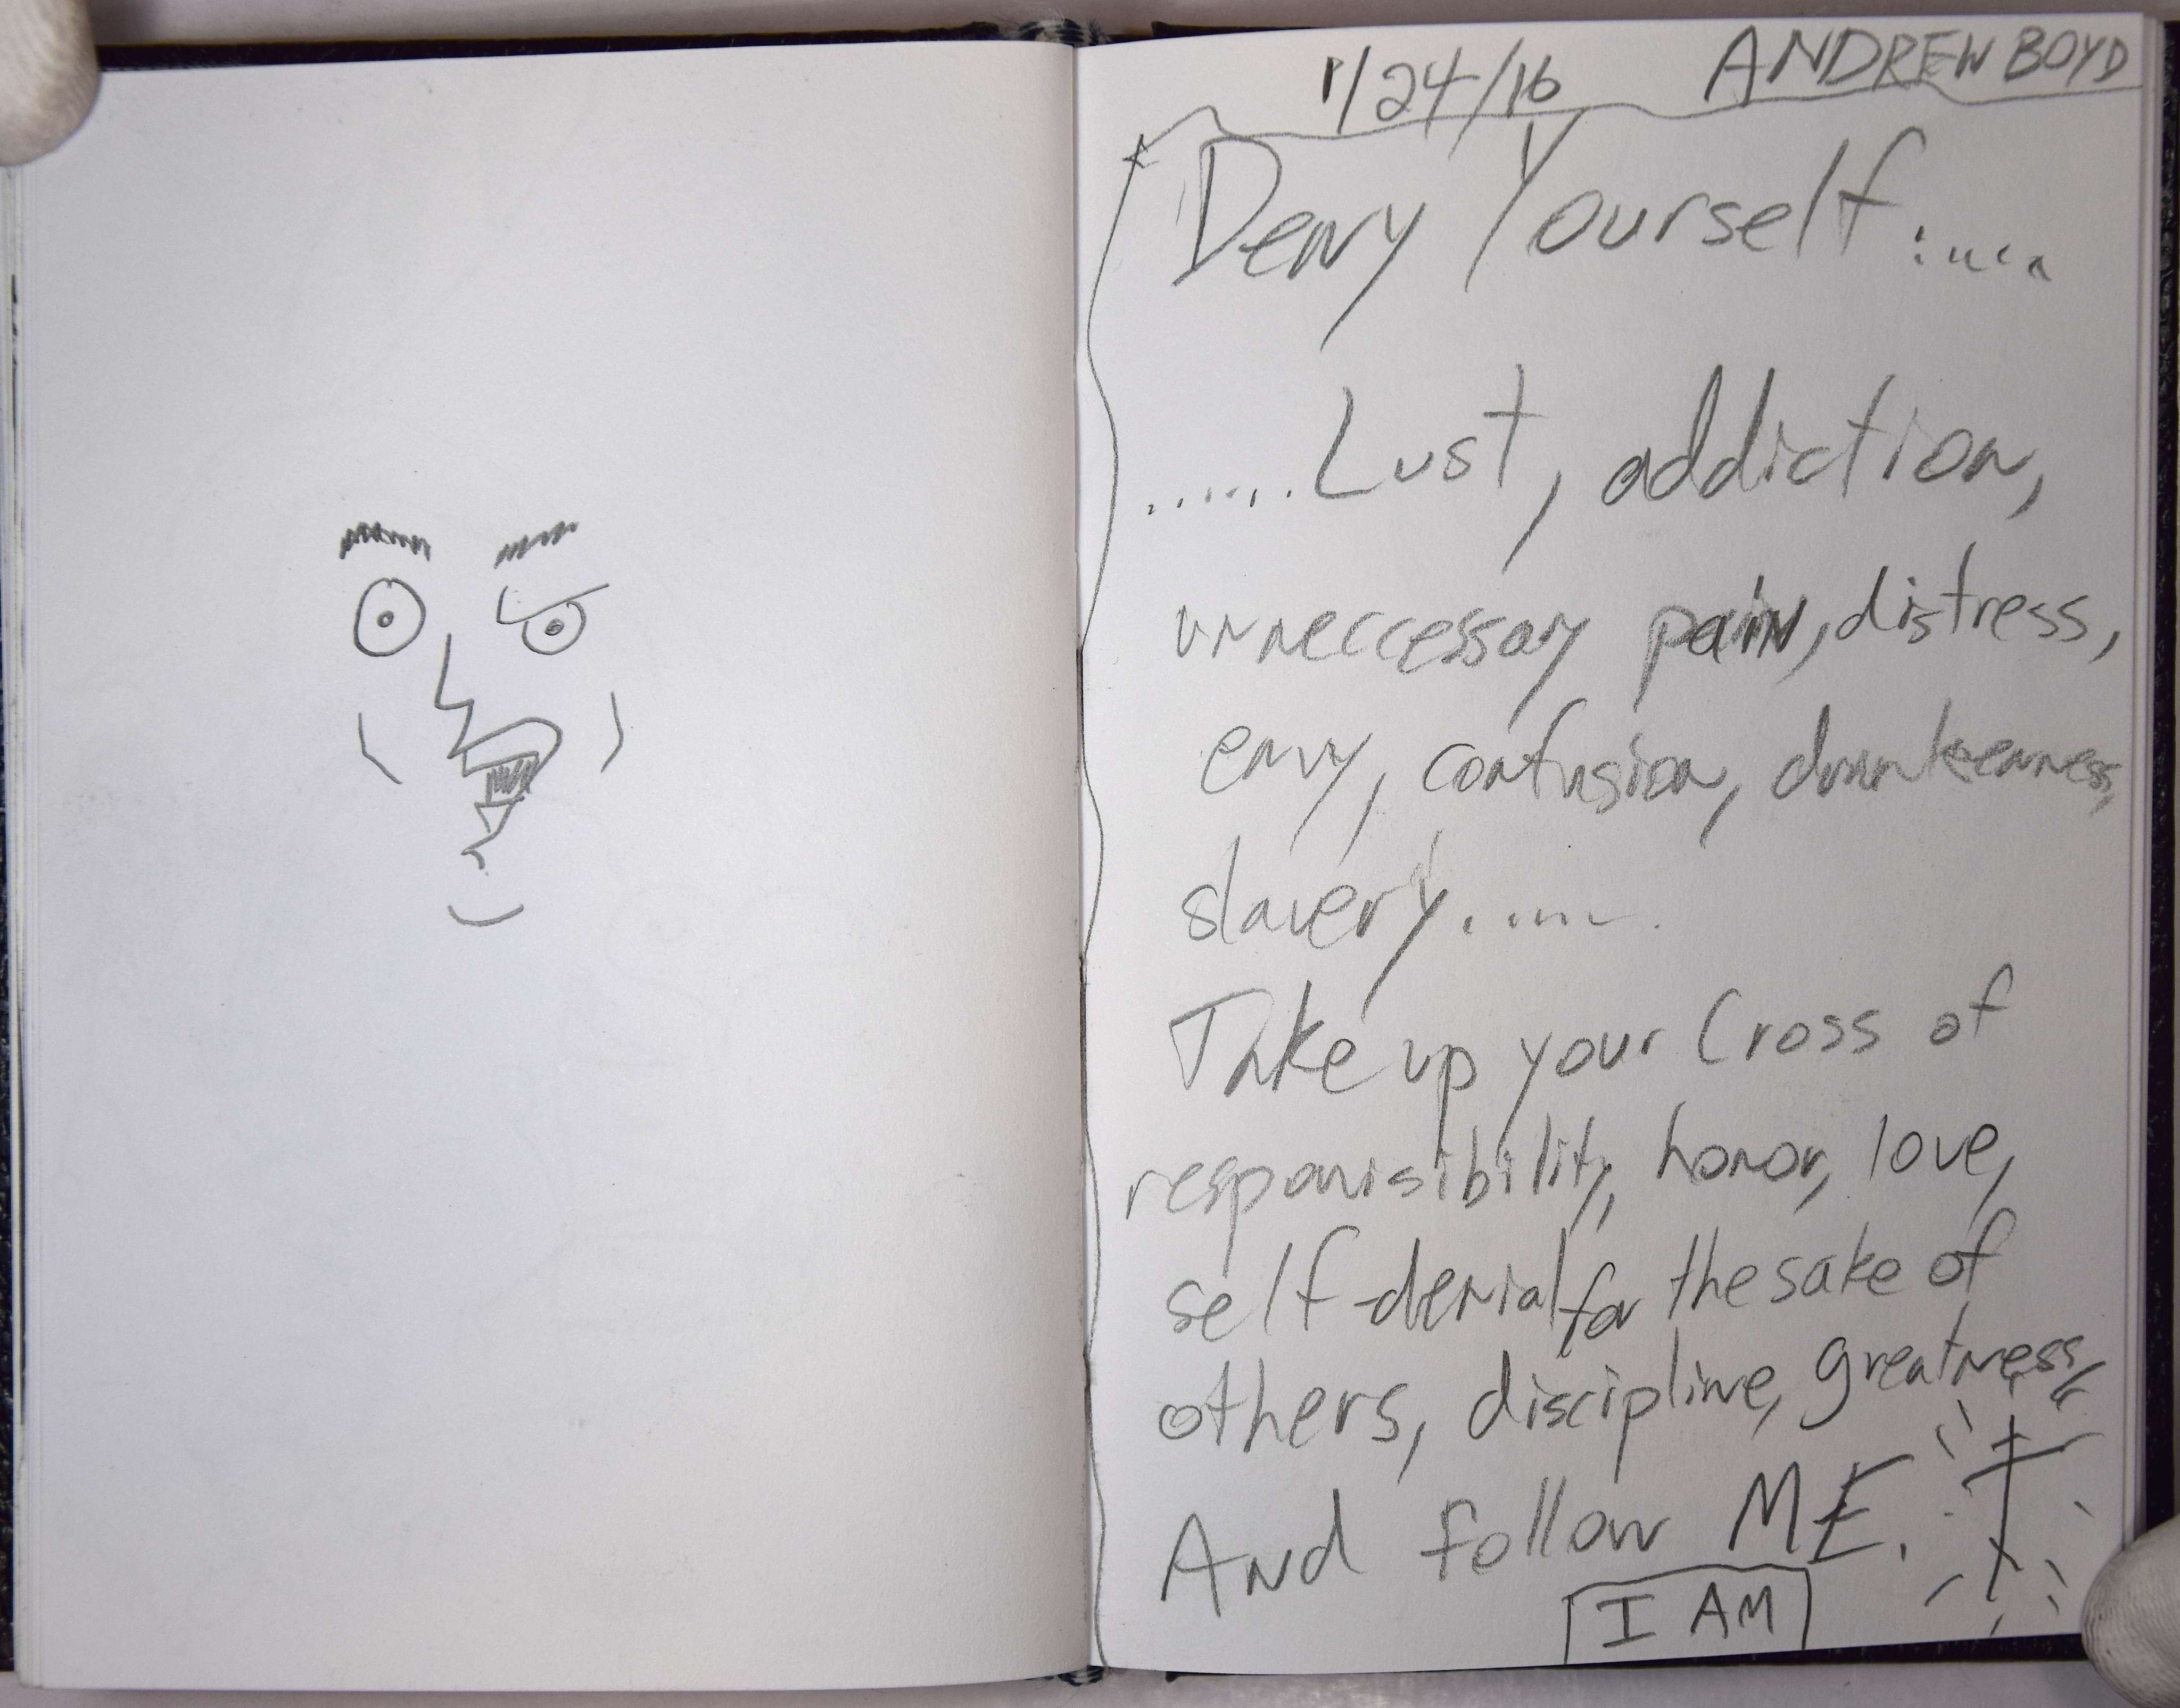 1/24/16 ANDREW BOYD
Deny Yourself.....
......Lust, addiction,
unneccessary pain, distress,
envy, confusion, drunkenness,
slavery......
Take up your Cross of
responisibility, honor, love,
self-denial for the sake of
others, discipline, greatness,
And follow ME.
I AM